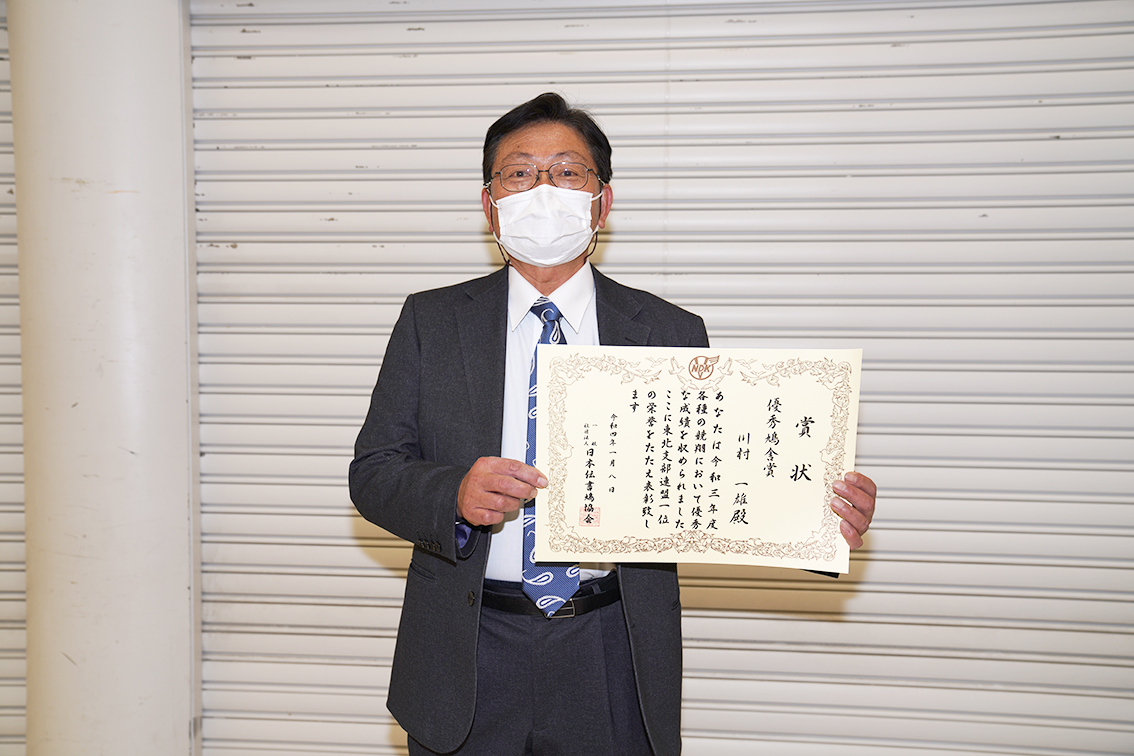 NPK
賞状
優秀鳩舎賞
川村 一雄殿
あなたは令和三年度
各種の競翔において優秀
な成績を収められました
ここに東北支部連盟一位
の栄誉をたたえ表彰致し
ます
令和四年一月八日
一般
社団法人 日本伝書鳩協会